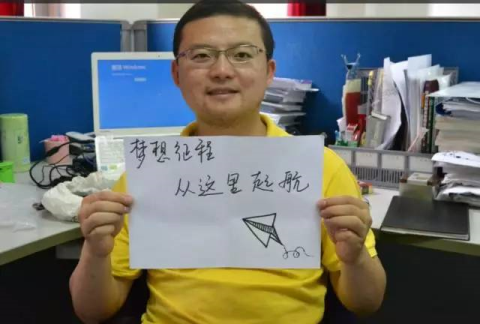 梦想征程
从这里起航
Windows